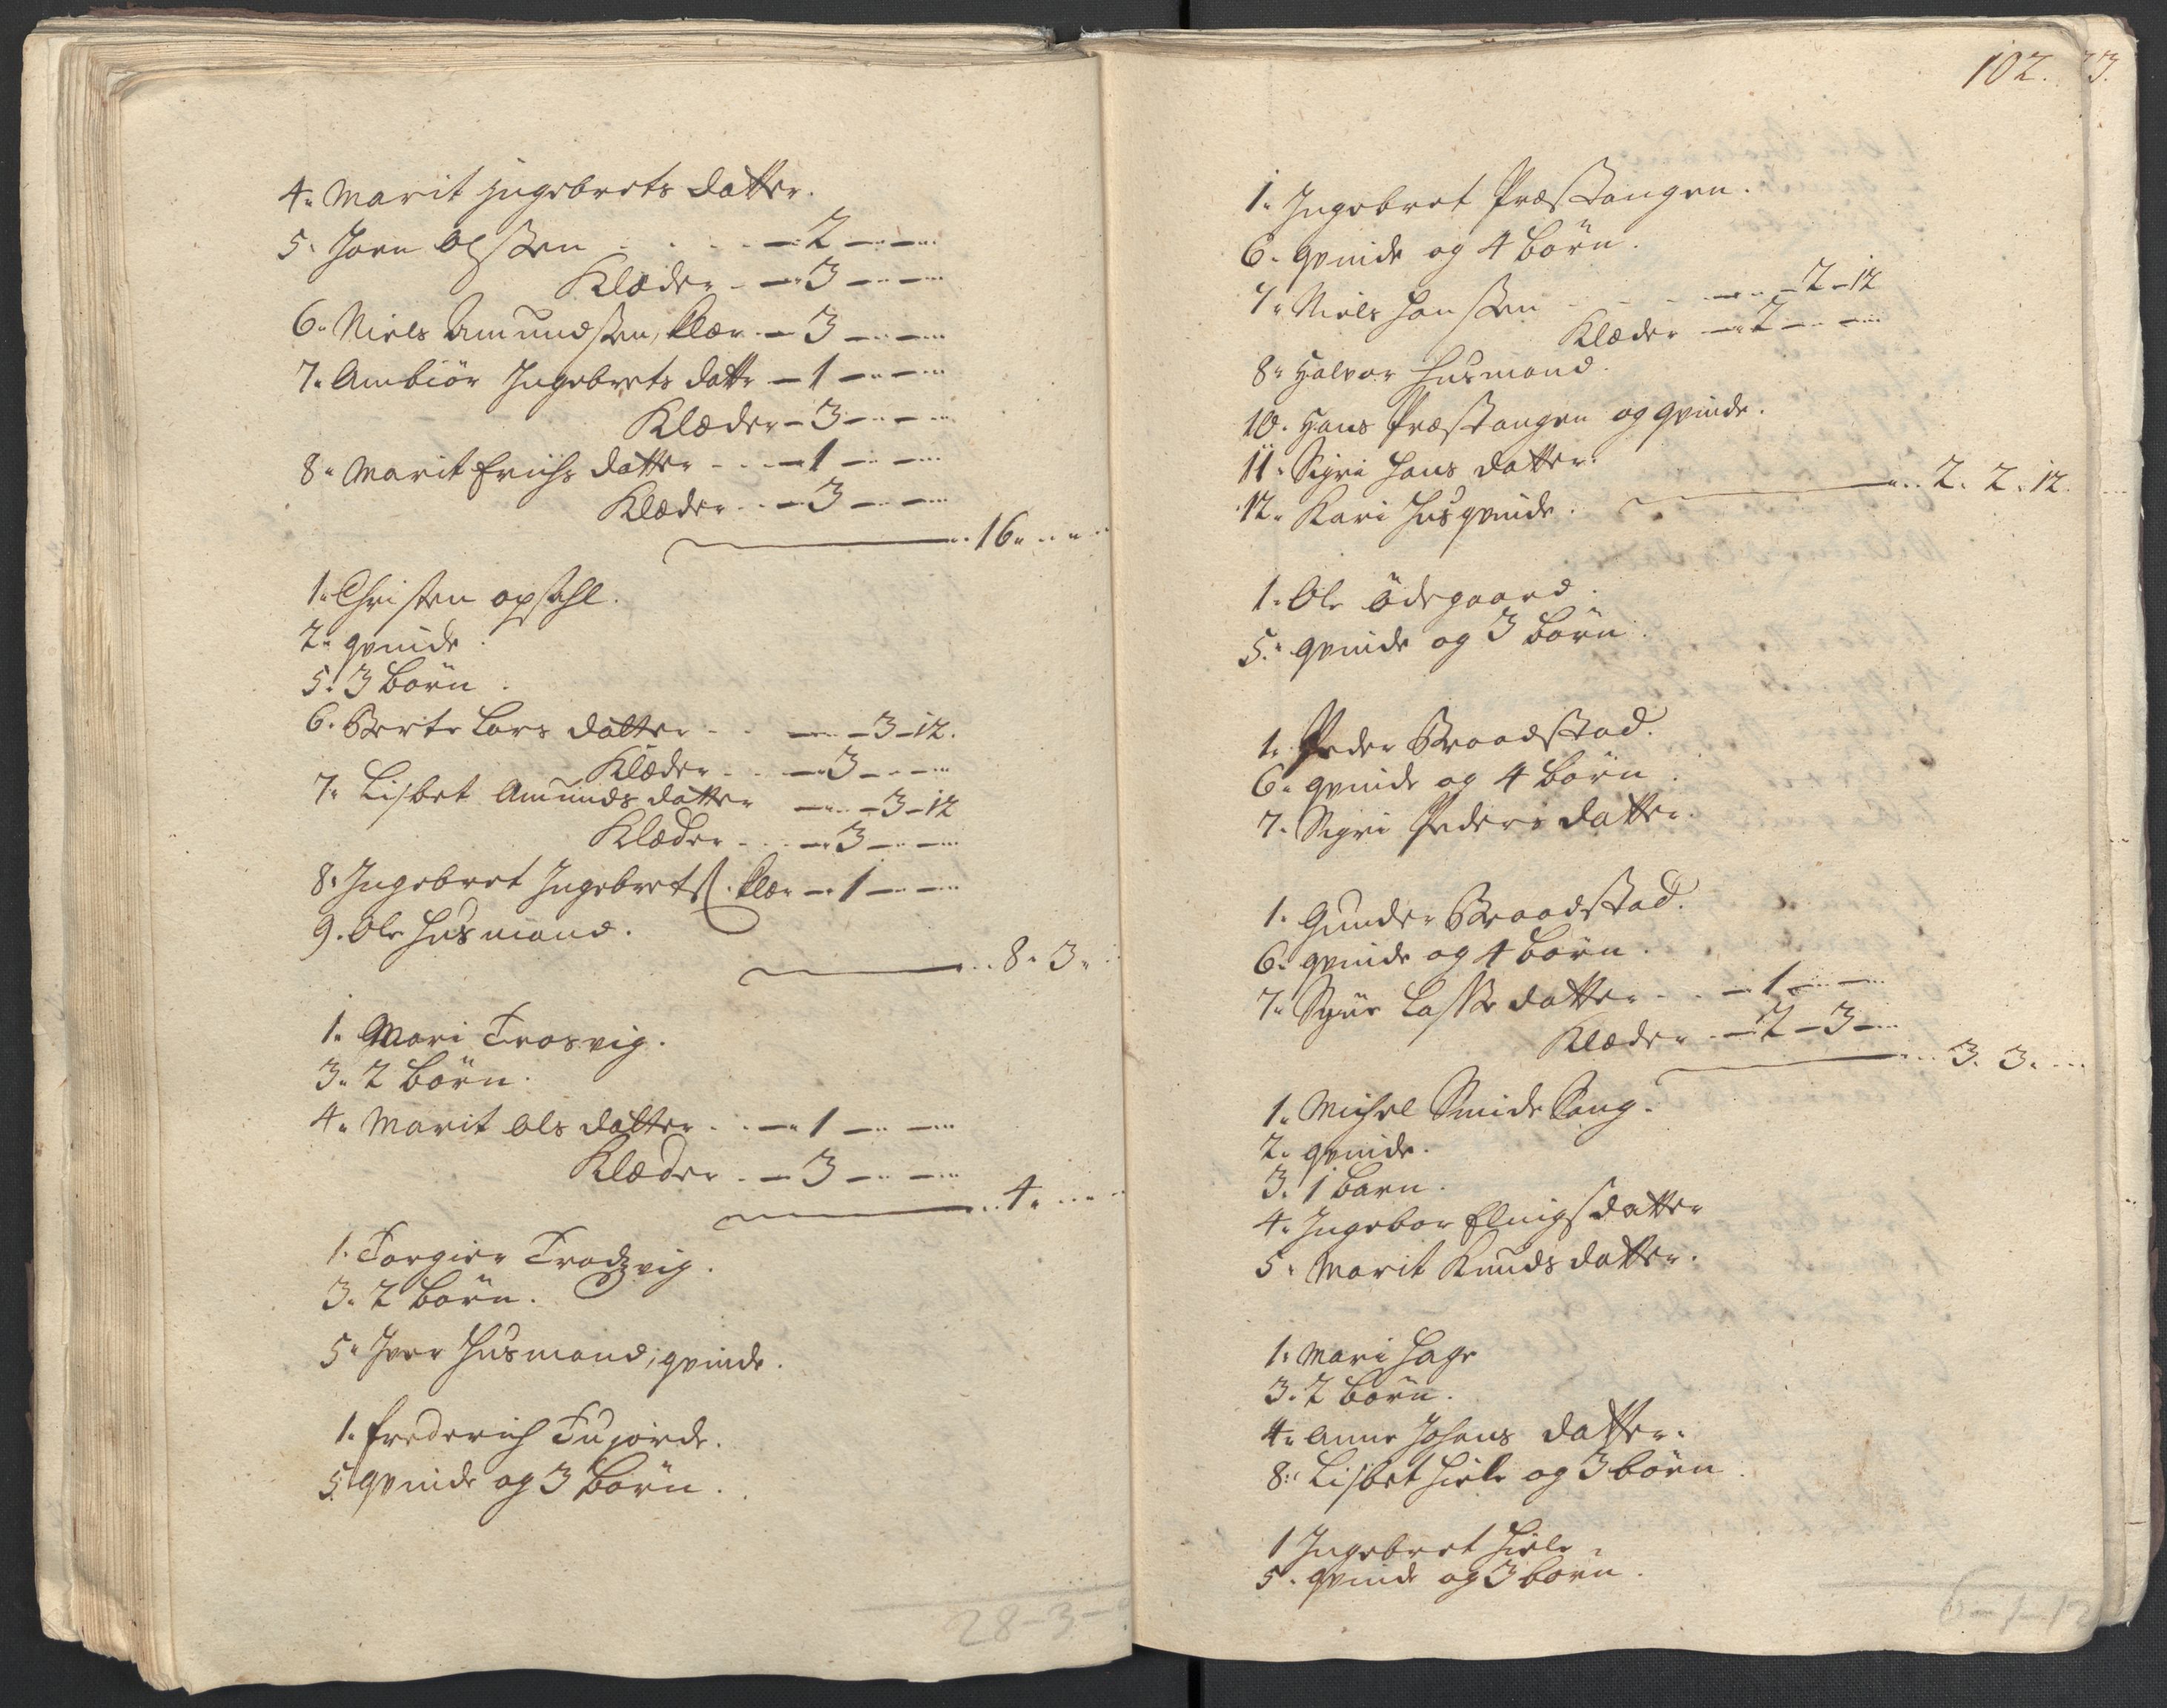 4. Marit Jngebrets datter.
5. Joen Olssen - - - 2 - -
Klæder - 3 - -
6. Niels Amundssen, klær - 3 - -
7. Ambiör Jngebrets dattr - 1 - -
Klæder - 3 - -
8. Marit Erichs datter - - 1 - -
Klæder - - 3 - -
16. - -
1. Christen opsahl.
2. qvinde.
5. 3 börn.
6. Berte Lars datter - - 3 - 12.
Klæder - - 3 - -
7. Lisbet Amunds datter - 3 - 12
Klæder - - 3 - -
8. Jngebret Jngebrets. klær - 1 - -
9. Ole Huusmand.
8. 3.
1. Mari Trosvig.
3. 2 börn.
4. Marit Ols datter - - 1 - -
Klæder - - 3 - -
4. - -
1. Torgier Trodzvig.
3. 2 börn.
5. Jver Huusmand, qvinde.
1. Frederich Tujorde.
5. qvinde og 3 börn.
28 - 3 -
102.
1. Jngebret Præstangen.
6. qvinde og 4 börn.
7. Niels Hanssen - - - 2 - 12
Klæder - 2 - -
8. Halvor Huusmand.
10. Hans Præstangen og qvinde.
11. Sigri Hans datter.
12. Kari Huusqvinde.
2. 2. 12.
1. Ole ödegaard.
5. qvinde og 3 börn.
1. Peder Braadstad.
6. qvinde og 4 börn.
7. Sigri Peders datter.
1. Gunder Braadstad.
6. qvinde og 4 börn.
7. Sigri Lasse datter - - 1 - -
Klæder - 2 - 3 -
3. 3. -
1. Michel Smidelang.
2. qvinde.
3. 1 barn.
4. Jngebor datter
5. Marit Knuds datter.
1. Mari Hage
3. 2 börn.
4. Anne Johans datter.
8. Lisbet Hiele og 3 börn.
1 Jngebret Hiele.
5. qvinde og 3 börn.